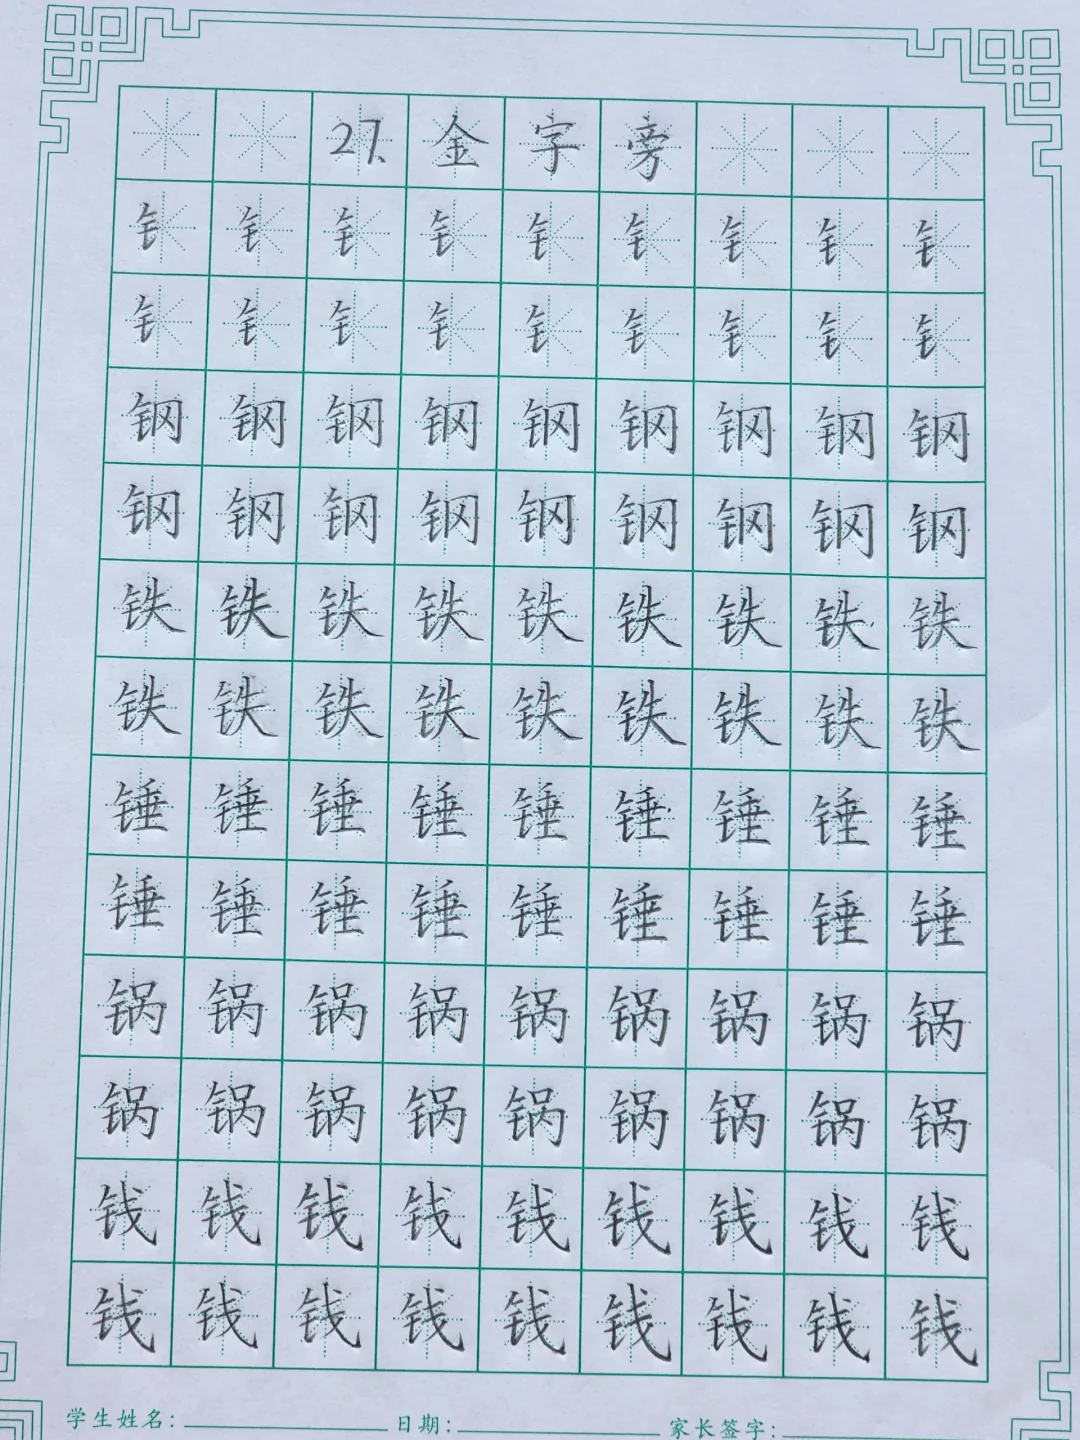 27.金字旁
钅钅钅钅钅钅钅钅钅
钅钅钅钅钅钅钅钅钅
钢钢钢钢钢钢钢钢钢
钢钢钢钢钢钢钢钢钢
铁铁铁铁铁铁铁铁铁
铁铁铁铁铁铁铁铁铁
锤锤锤锤锤锤锤锤锤
锤锤锤锤锤锤锤锤锤
锅锅锅锅锅锅锅锅锅
锅锅锅锅锅锅锅锅锅
钱钱钱钱钱钱钱钱钱
钱钱钱钱钱钱钱钱钱
学生姓名: 日期: 家长签字: